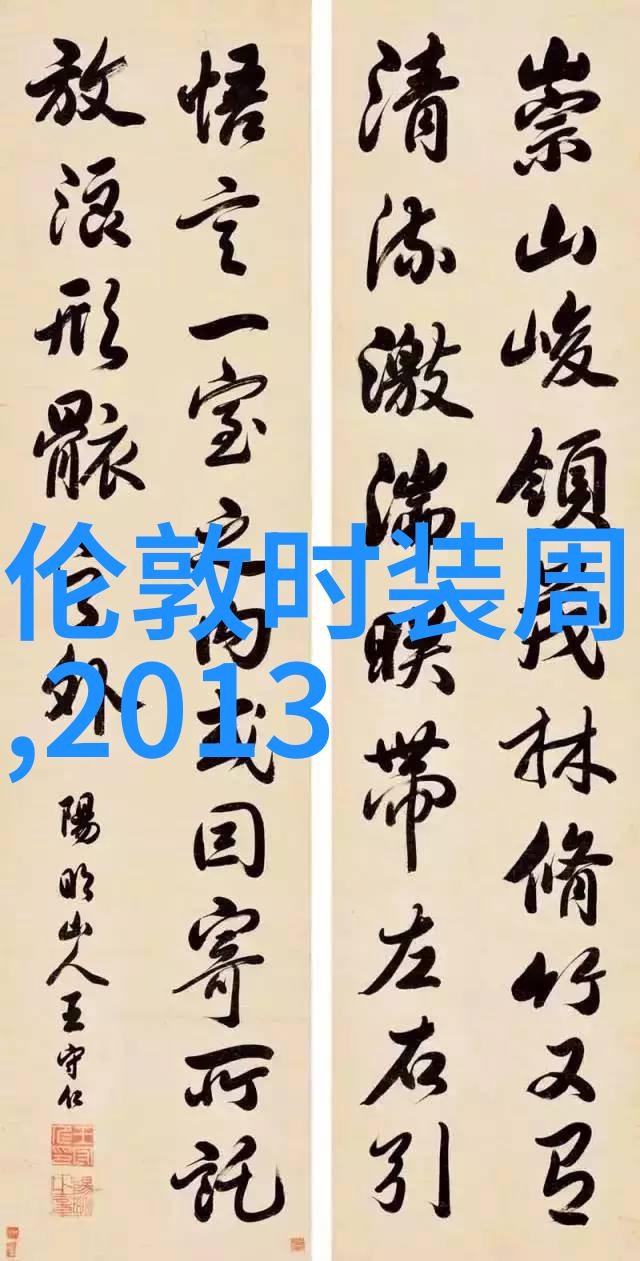 崇山峻領茂林脩竹又有
清流激湍暎帶左右引
悟言一室之内或因寄所託
放浪形骸之外
陽明山人王守仁
伦敦时装周
,2013